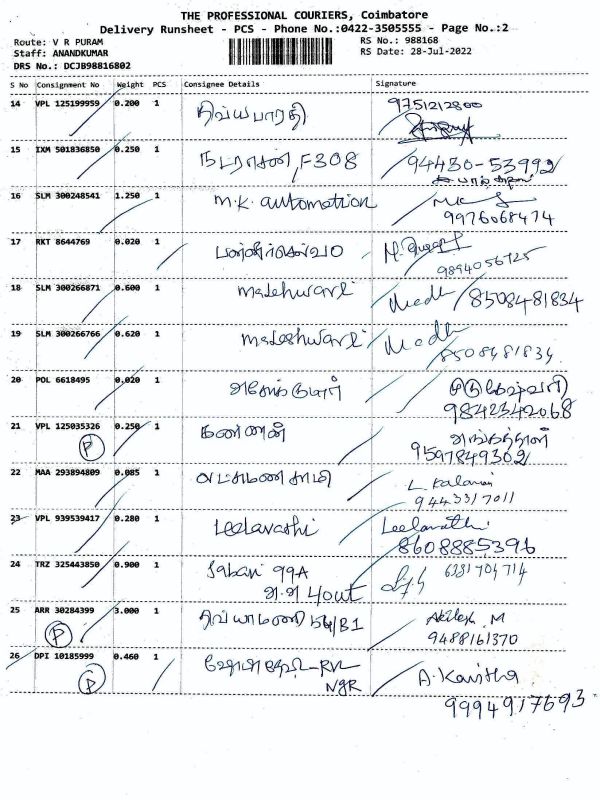 THE PROFESSIONAL COURIERS, Coimbatore
Delivery Runsheet - PCS - Phone No.:0422-3505555 - Page No.:2
Route: V R PURAM
RS No.: 988168
Staff: ANANDKUMAR
RS Date: 28-Jul-2022
DRS No.: DCJB98816802
S No Consignment No Weight PCS Consignee Details Signature
14 VPL 125199959 0.200 1 திவ்யபாரதி 9751212800
15 IXM 501836850 0.250 1 நடராசன், F308 94430-53992
16 SLM 300248541 1.250 1 M.K. automation
9976068474
17 RKT 8644769 0.020 1
9894056725
18 SLM 300266871 0.600 1 Madeshwari Madh 8508481834
19 SLM 300266766 0.620 1 Madeshwari Madh
8508481834
20 POL 6618495 0.020 1 அசோக்குமார்
9842342068
21 VPL 125035326 0.250 1 கண்ணன்
P 9597849302
22 MAA 293894809 0.085 1 லட்சுமணசாமி L. Kalamani
9443317011
23 VPL 939539417 0.280 1 Leelavathi Leelavathi
8608885396
24 TRZ 325443850 0.900 1 Sabari 99A 6381704714
4/out
25 ARR 30284399 3.000 1 திவ்யாமணி 54/B1 Akilesh. M
P 9488161370
26 DPI 10185999 0.460 1 RVL A. Kavitha
P NGR
9994917693